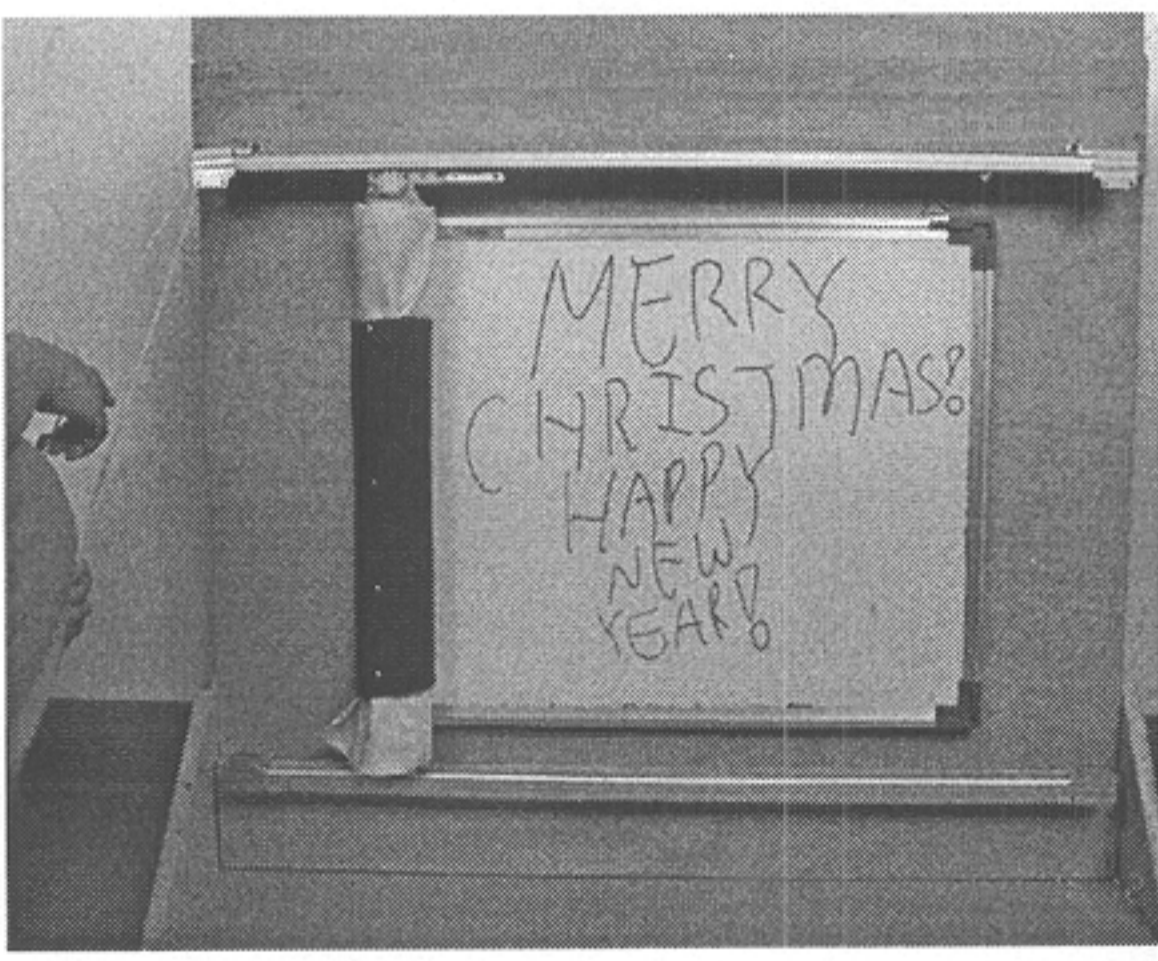 MERRY
CHRISTMAS!
HAPPY
NEW
YEAR!